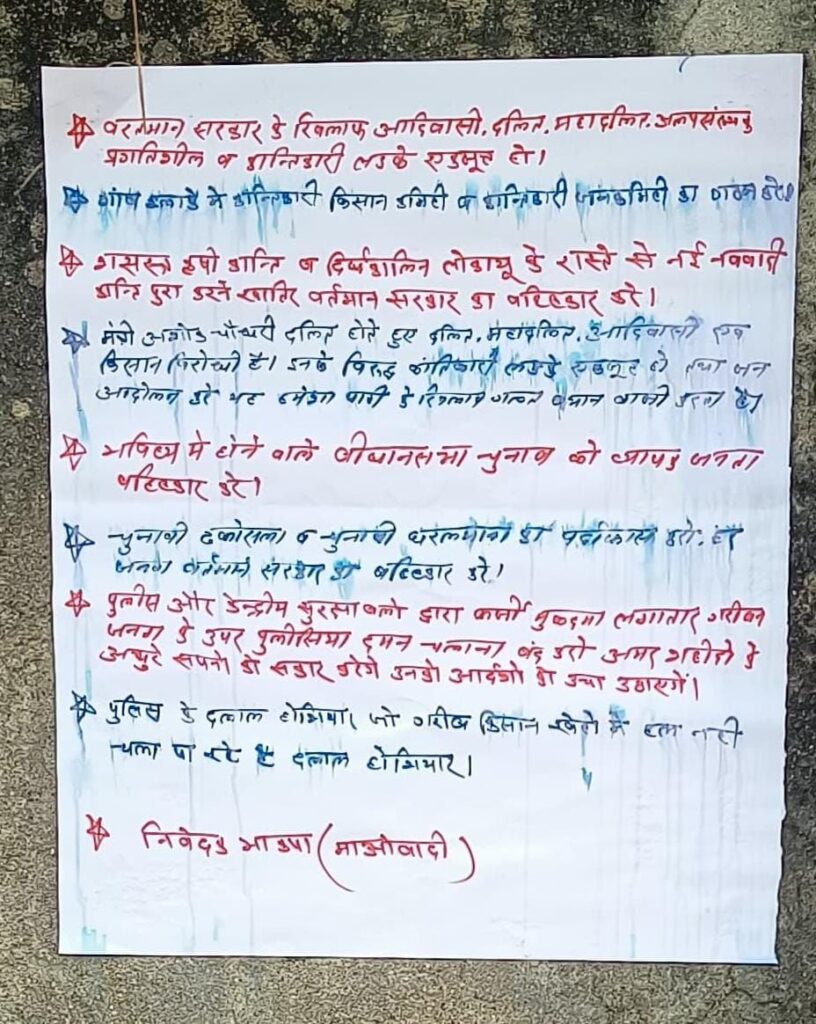 वरतमान सरकार के खिलाफ आदिवासी, दलित, महादलित, अल्पसंख्यक
प्रगतिशील व क्रान्तिकारी लडके एकजूट हो।
गांव इलाके में क्रान्तिकारी किसान कमिटी व क्रान्तिकारी जनकमिटी का गठन करे।
शसस्त्र कृषी क्रान्ति व दिर्घकालिन लोकयू के रास्ते से नई नववादी
क्रान्ति पुरा करने खातिर वर्तमान सरकार का बहिस्कार करे।
मंत्री अशोक चौधरी दलित होते हुए दलित, महादलित, आदिवासी एवं
किसान विरोधी है। इनके विरुद्ध क्रांतिकारी लडके एकजूट हो तथा जन
आंदोलन करे यह हमेशा पार्टी के खिलाफ गलत बयान बाजी करता है।
भविष्य मे होने वाले वीधानसभा चुनाव को व्यापक जनता
बहिस्कार करे।
चुनावी ढकोसला व चुनावी का पर्दाफास करो,
जनता वर्तमान सरकार का बहिस्कार करे।
पुलीस और केन्द्रीय सुरक्षा बलो द्वारा फर्जी मुकदमा लगातार गरीब
जनता के उपर पुलीसिया दमन चलाना बंद करो अमर शहीदो के
अधुरे सपनो को सकार करेगे उनको आर्दशो को उचा उठाएगें।
पुलिस के दलाल होशियार जो गरीब किसान खेतो मे हल नही
चला पा रहे है दलाल होशियार।
निवेदक भाकपा (माओवादी)